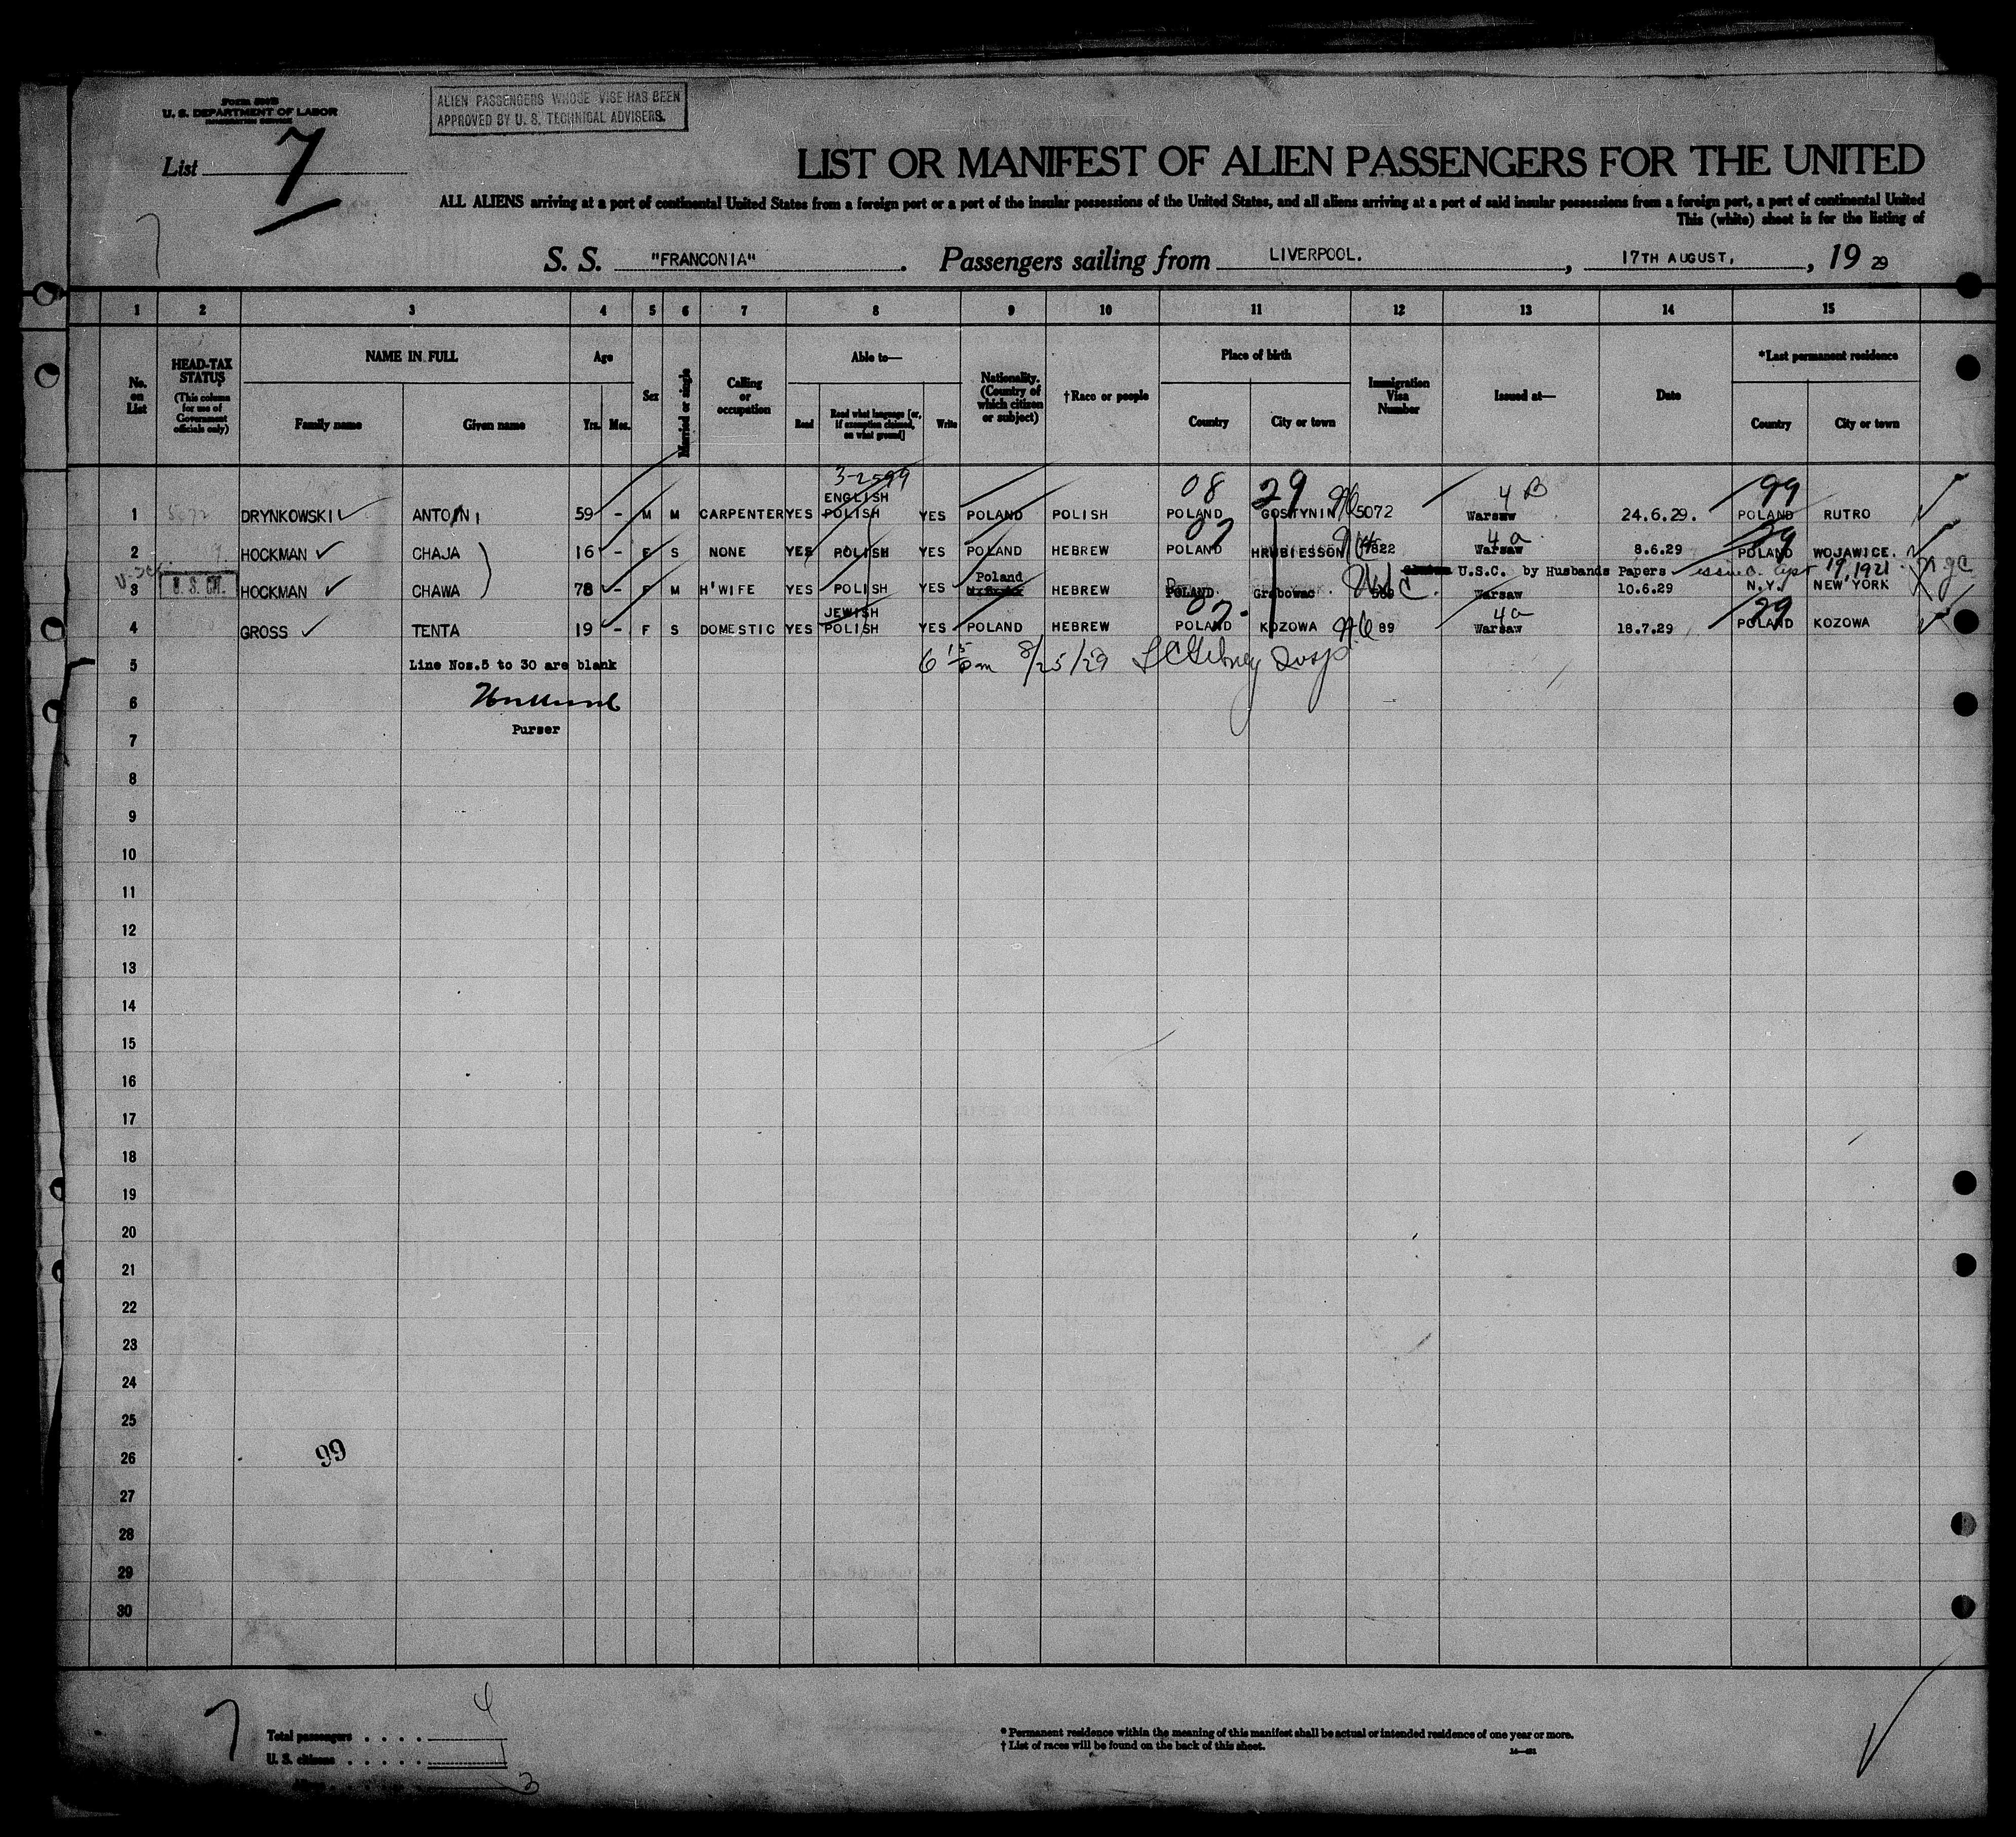 Form 500B
U. S. DEPARTMENT OF LABOR
IMMIGRATION SERVICE
ALIEN PASSENGERS WHOSE VISE HAS BEEN
APPROVED BY U. S. TECHNICAL ADVISERS.
List 7
LIST OR MANIFEST OF ALIEN PASSENGERS FOR THE UNITED
ALL ALIENS arriving at a port of continental United States from a foreign port or a port of the insular possessions of the United States, and all aliens arriving at a port of said insular possessions from a foreign port, a port of continental United
This (white) sheet is for the listing of
S. S. "FRANCONIA". Passengers sailing from LIVERPOOL., 17TH AUGUST,, 19 29
1 2 3 4 5 6 7 8 9 10 11 12 13 14 15
No. on List
HEAD-TAX STATUS (This column for use of Government officials only)
NAME IN FULL Family name Given name
Age Yrs. Mos.
Sex
Married or single
Calling or occupation
Able to— Read Read what language [or, if exemption claimed, on what ground] Write
Nationality. (Country of which citizen or subject)
†Race or people
Place of birth Country City or town
Immigration Visa Number
Issued at—
Date
*Last permanent residence Country City or town
3-2599 08 29 4 B 99
1 5072 DRYNKOWSKI ANTONI 59 - M M CARPENTER YES ENGLISH POLISH YES POLAND POLISH POLAND GOSTYNIN 5072 Warsaw 24.6.29. POLAND RUTRO
07 4 a 29
2 HOCKMAN CHAJA 16 - F S NONE YES POLISH YES POLAND HEBREW POLAND HRUBIESSON 7822 Warsaw 8.6.29 POLAND WOJAWICE.
U.S.C. by Husbands Papers issued 19, 1921
3 U. S. CIT. HOCKMAN CHAWA 78 - F M H'WIFE YES POLISH YES Poland HEBREW POLAND Grabowac Warsaw 10.6.29 N.Y. NEW YORK
07 4a 29
4 GROSS TENTA 19 - F S DOMESTIC YES JEWISH POLISH YES POLAND HEBREW POLAND KOZOWA 89 Warsaw 18.7.29 POLAND KOZOWA
5 Line Nos.5 to 30 are blank 8/25/29 Insp
6
Purser
7
8
9
10
11
12
13
14
15
16
17
18
19
20
21
22
23
24
25
26 99
27
28
29
30
7
Total passengers . . . . 4
U. S. citizens . . . . . 1
Aliens . . . . 3
* Permanent residence within the meaning of this manifest shall be actual or intended residence of one year or more.
† List of races will be found on the back of this sheet.